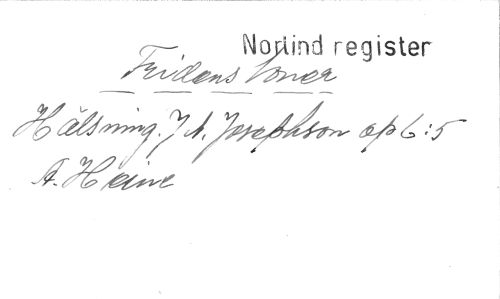 Norlind register
Fridens toner
Hälsning. J. A. Josephson op 6:5
A. Heine